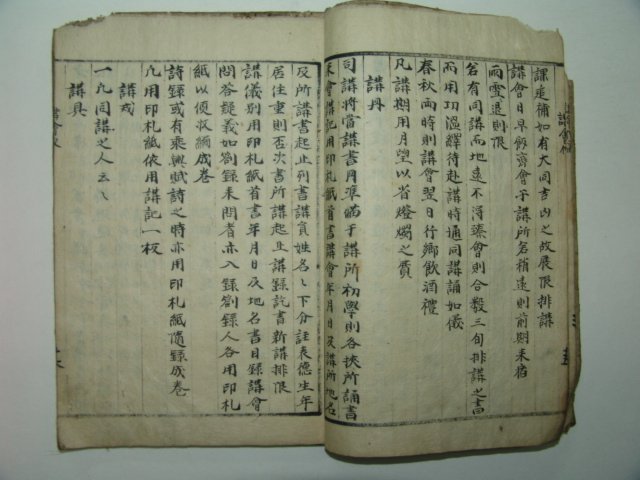 課定補如有大同吉凶之故展限排講
講會日早飯齊會于講所若稍遠則前期來宿
雨雪退則限
若有同講而地遠不得臻會則合數三旬排講之書
而用功溫繹待赴講時通同講誦如儀
春秋兩時則講會翌日行鄉飲酒禮
凡講期用月望以省燈燭之費
講冊
司講將當講書冊準備于講所初學則各挾所誦書
來會講記用印札紙首書講會年月日及講所地名
及所講書起止列書講員姓名〻下分註表德生年
居住重則否次書所講起止講錄訖書新講排限
講儀別用印札紙首書年月日及地名書目錄講會
問答疑義如劄錄來問者亦入錄劄錄人各用印札
紙以便收編成卷
詩錄或有乘興賦詩之時亦用印札紙隨錄成卷
凡用印札紙依用講記一板
講戒
一凡同講之人云〻
講具